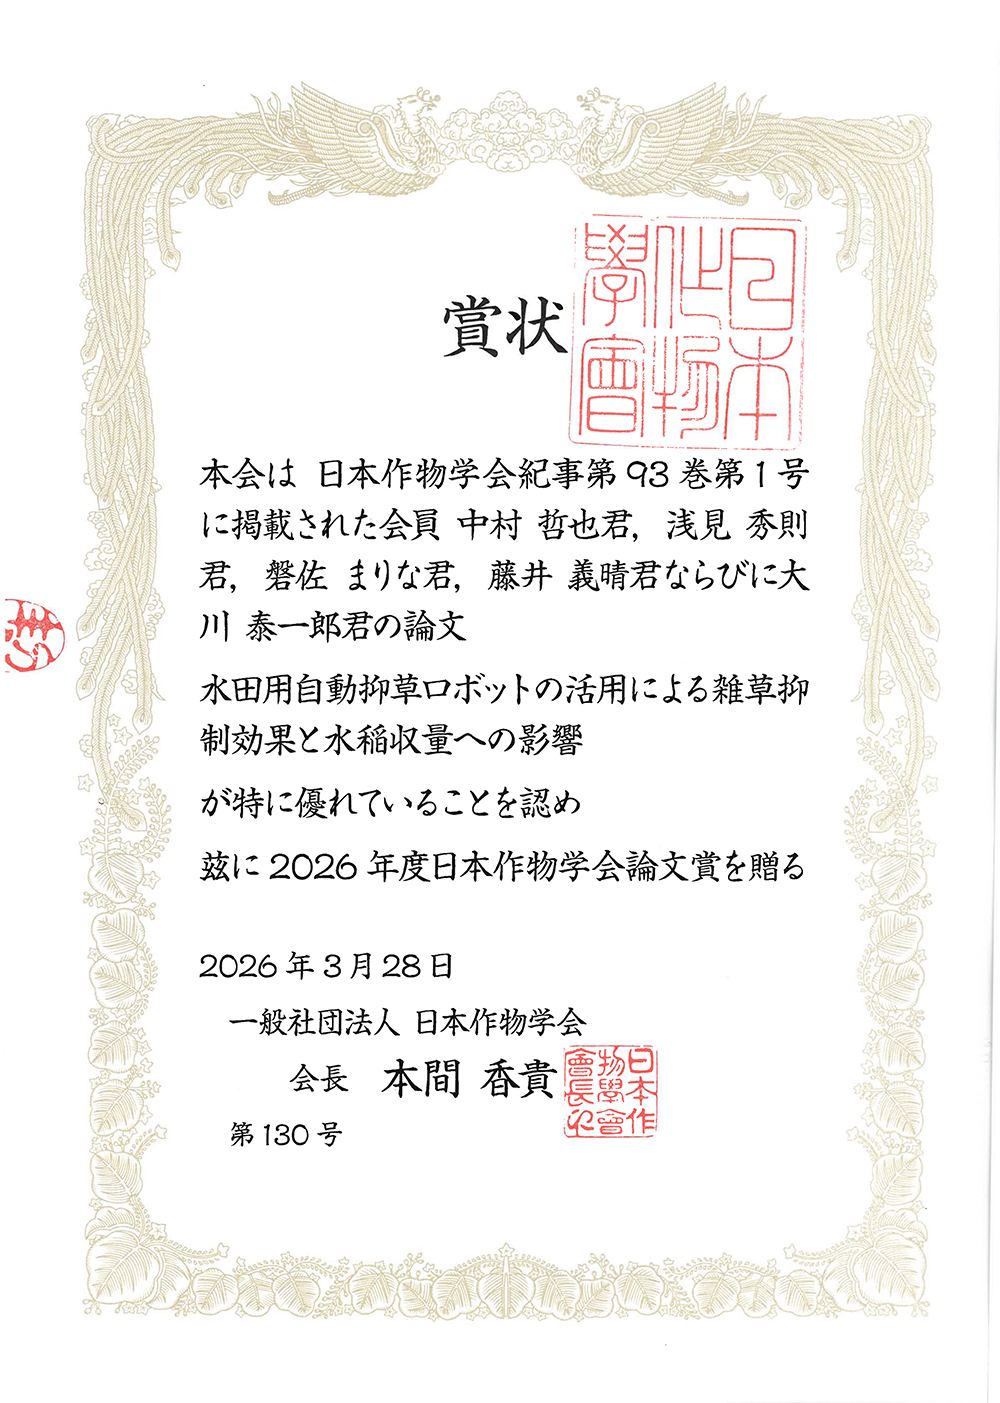 賞状
日本作物學會
本会は 日本作物学会紀事第93巻第1号
に掲載された会員 中村 哲也君，浅見 秀則
君，磐佐 まりな君，藤井 義晴君ならびに大
川 泰一郎君の論文
水田用自動抑草ロボットの活用による雑草抑
制効果と水稲収量への影響
が特に優れていることを認め
茲に2026年度日本作物学会論文賞を贈る
2026年3月28日
一般社団法人 日本作物学会
会長 本間 香貴
日本作物學會會長之印
第130号